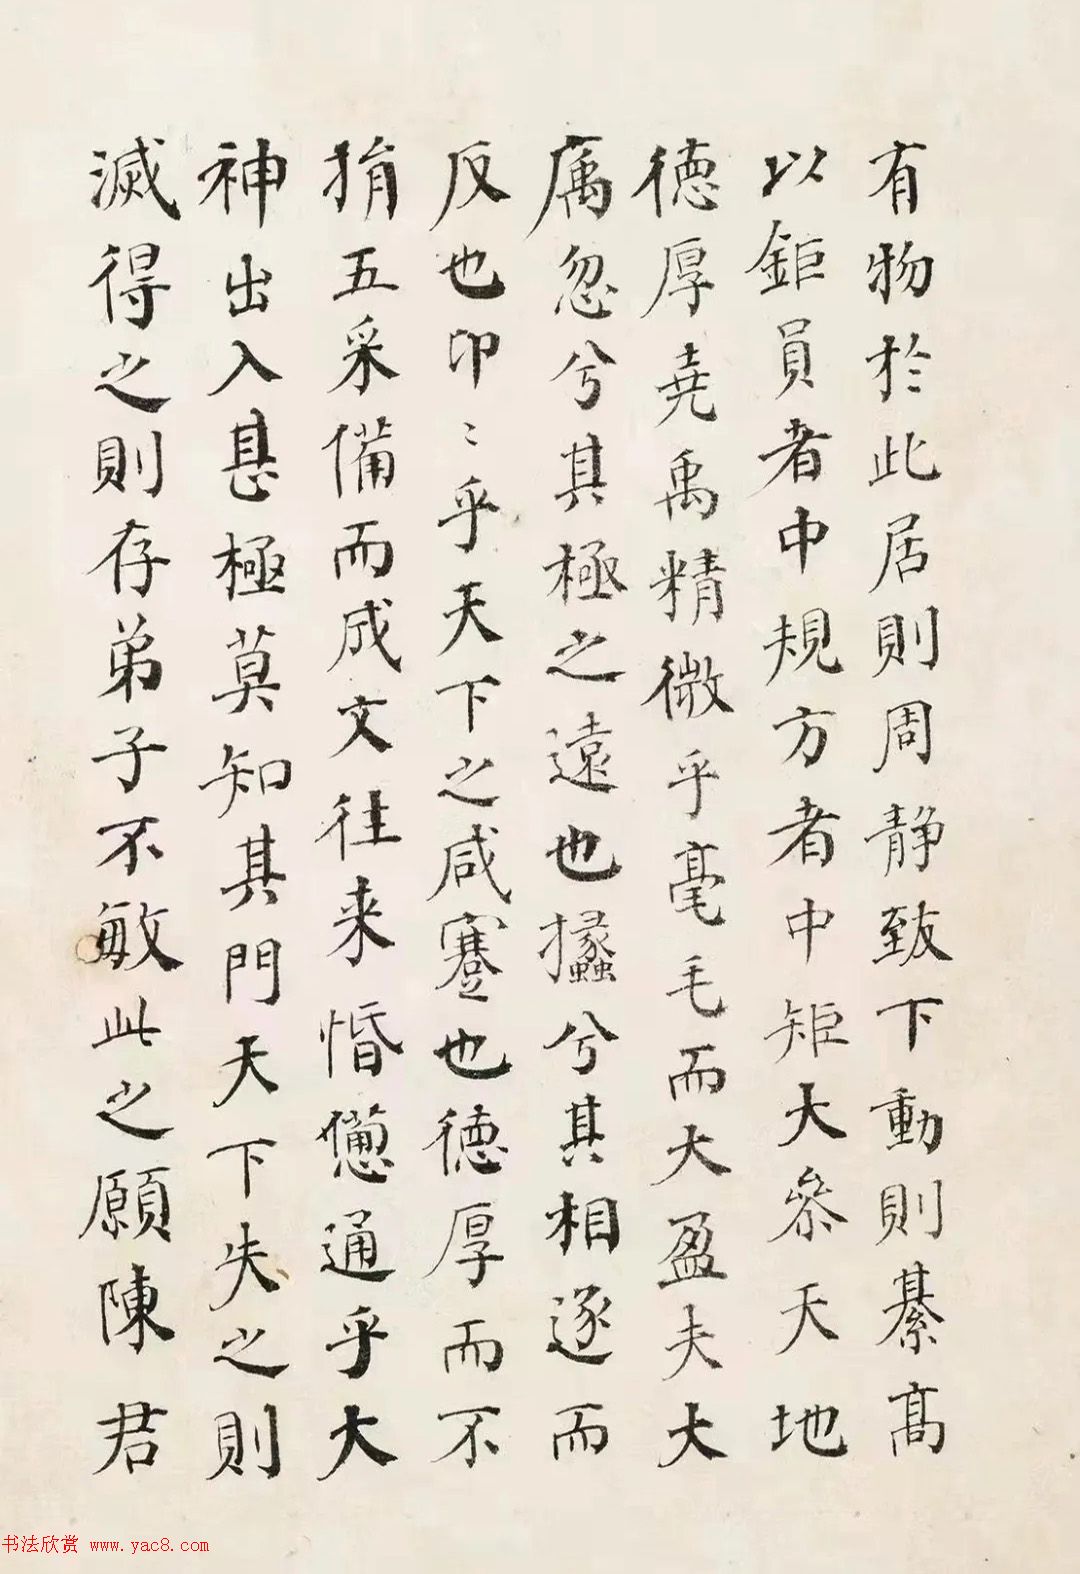 有物於此居則周靜致下動則綦高
以鉅員者中規方者中矩大參天地
德厚堯禹精微乎毫毛而大盈夫大
㢖忽兮其極之遠也攭兮其相逐而
反也卬〻乎天下之咸蹇也德厚而不
捐五采備而成文往来惛憊通乎大
神出入甚極莫知其門天下失之則
滅得之則存弟子不敏此之願陳君
书法欣赏 www.yac8.com